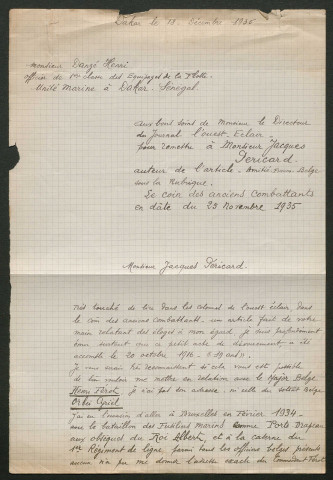 Dakar le 18 Décembre 1935
Monsieur Danzé Henri
officier de 1ère classe des Equipages de la Flotte
Unité Marine à Dakar. Sénégal
aux bons soins de Monsieur le Directeur
du Journal l'ouest-Eclair
pour remettre à Monsieur Jacques
Péricard.
auteur de l'article. Amitié Belge
sous la Rubrique.
Le coin des anciens Combattants
en date du 23 Novembre 1935
Monsieur Jacques Péricard.
très touché de lire dans les colonnes de l'ouest éclair, dans
le coin des anciens combattants. un article fait de votre
main relatant des éloges à mon égard, je suis profondément
ému surtout que ce petit acte de dévouement a été
accompli le 20 octobre 1916. "19 ans".
Je vous serai très reconnaissant si cela vous est possible
de bien vouloir me mettre en relation avec le Major Belge
Henri Férot, je n'ai pas son adresse, ni celle du soldat Belge
Orber
J'ai eu l'occasion d'aller à Bruxelles en Février 1934.
avec le bataillon des Fusiliers Marins comme Porte Drapeau
aux obsèques du Roi Albert, et à la caserne du
1er Régiment de ligne, parmi tous les officiers belges présents
aucun n'a pu me donner l'adresse exacte du Commandant Férot